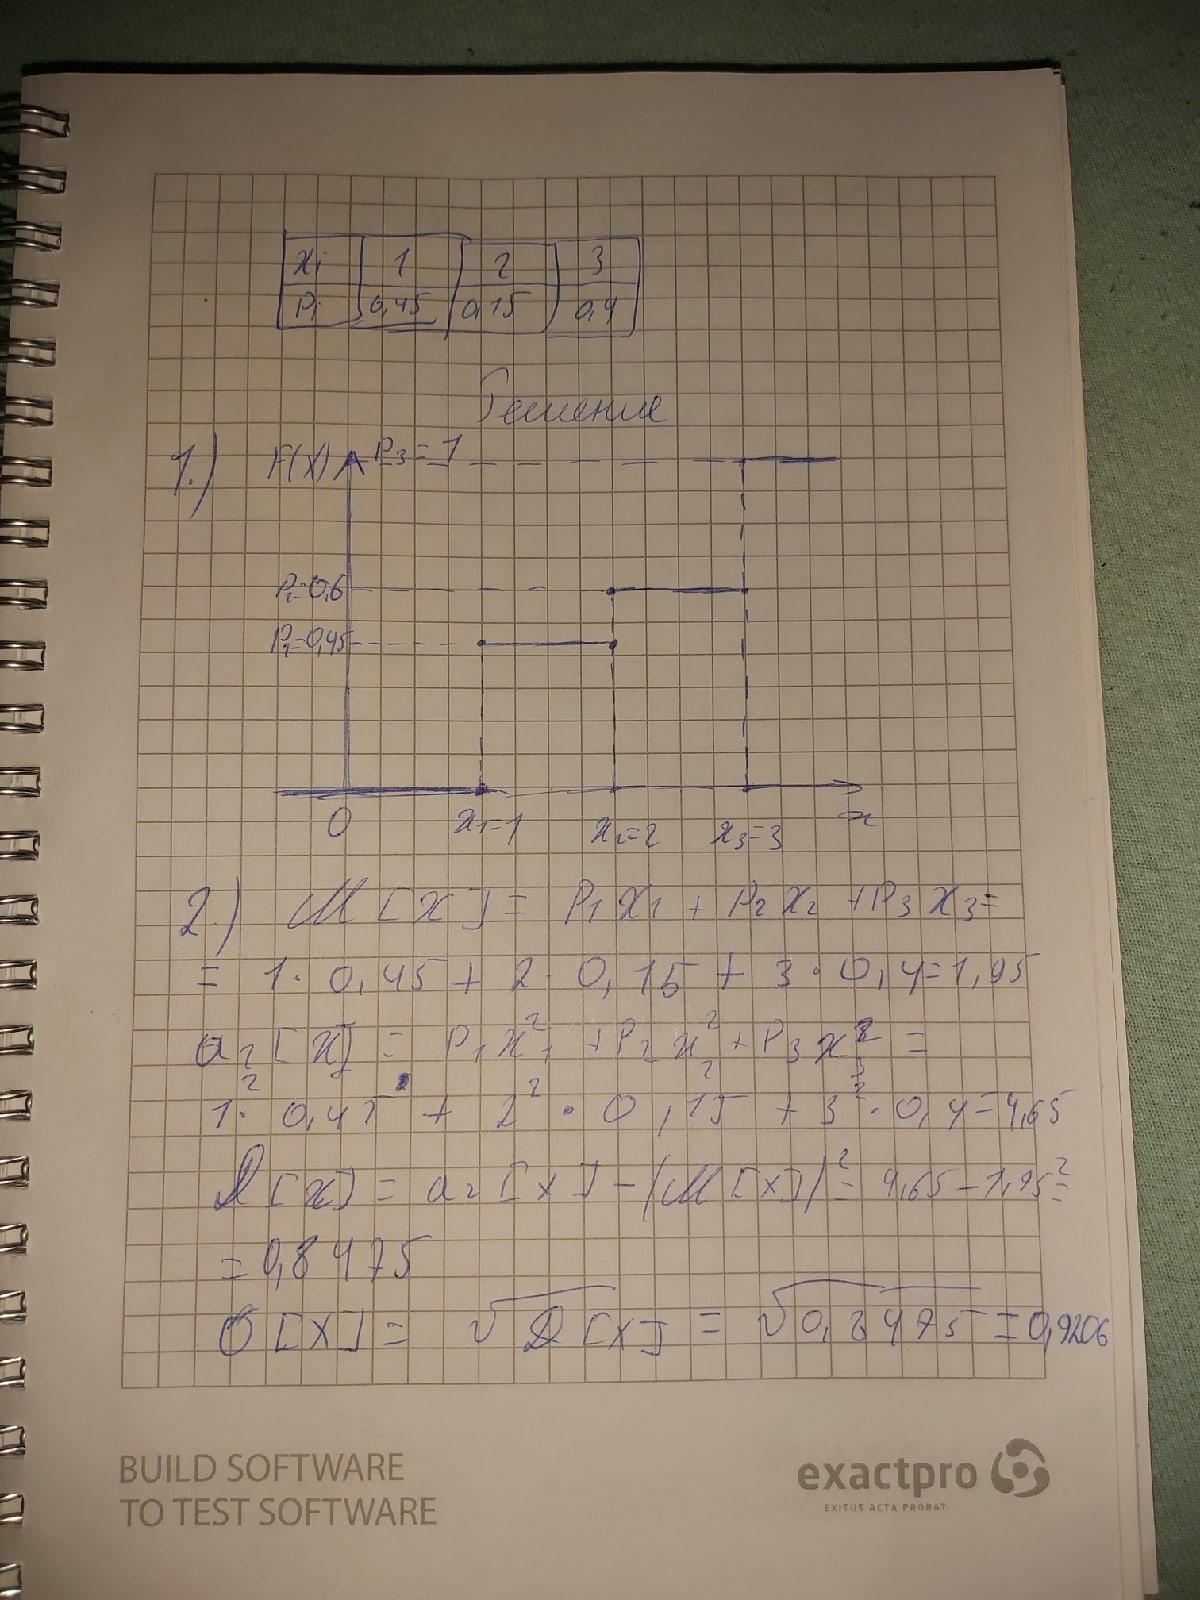 xi 1 2 3
Pi 0,45 0,15 0,4
Решение
1.) F(x) P3=1
P2=0,6
P1=0,45
0 x1=1 x2=2 x3=3 x
2.) M[X] = P1 x1 + P2 x2 + P3 x3 =
= 1 · 0,45 + 2 · 0,15 + 3 · 0,4 = 1,95
a2[X] = P1 x1² + P2 x2² + P3 x3² =
1² · 0,45 + 2² · 0,15 + 3² · 0,4 = 4,65
D[X] = a2[X] - (M[X])² = 4,65 - 1,95² =
= 0,8475
σ[X] = √D[X] = √0,8475 = 0,9206
BUILD SOFTWARE
TO TEST SOFTWARE
exactpro
EXITUS ACTA PROBAT